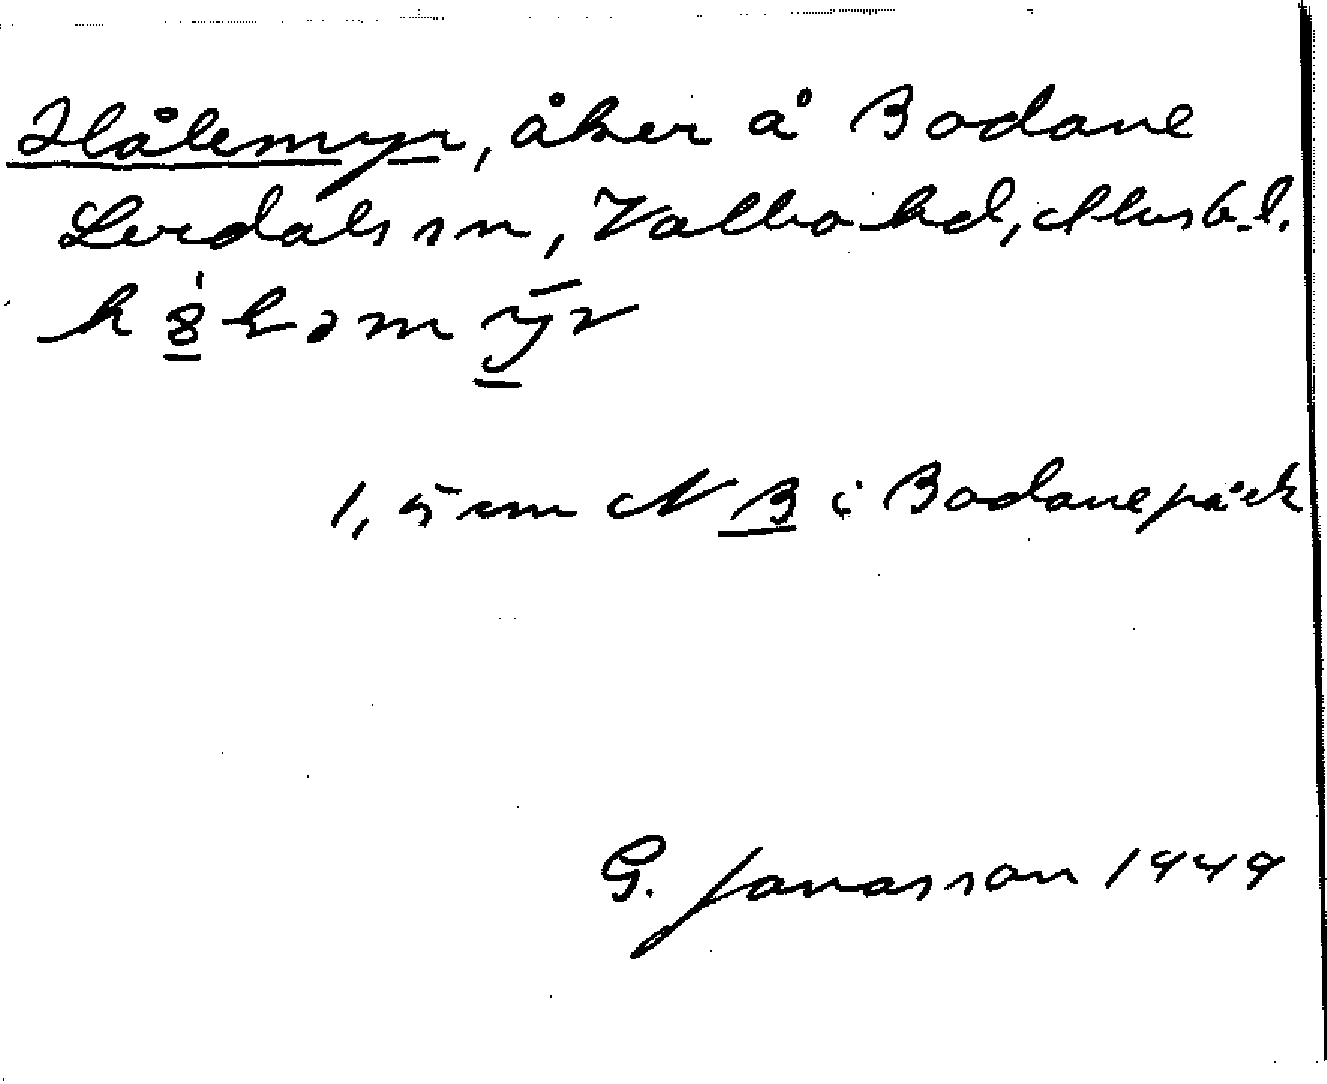 Hålemyr, åker å Bodane
Lerdals sn, Valbo hd, Älvsb. l.
1,5 cm N B i Bodanepåck
G. Jonasson 1949